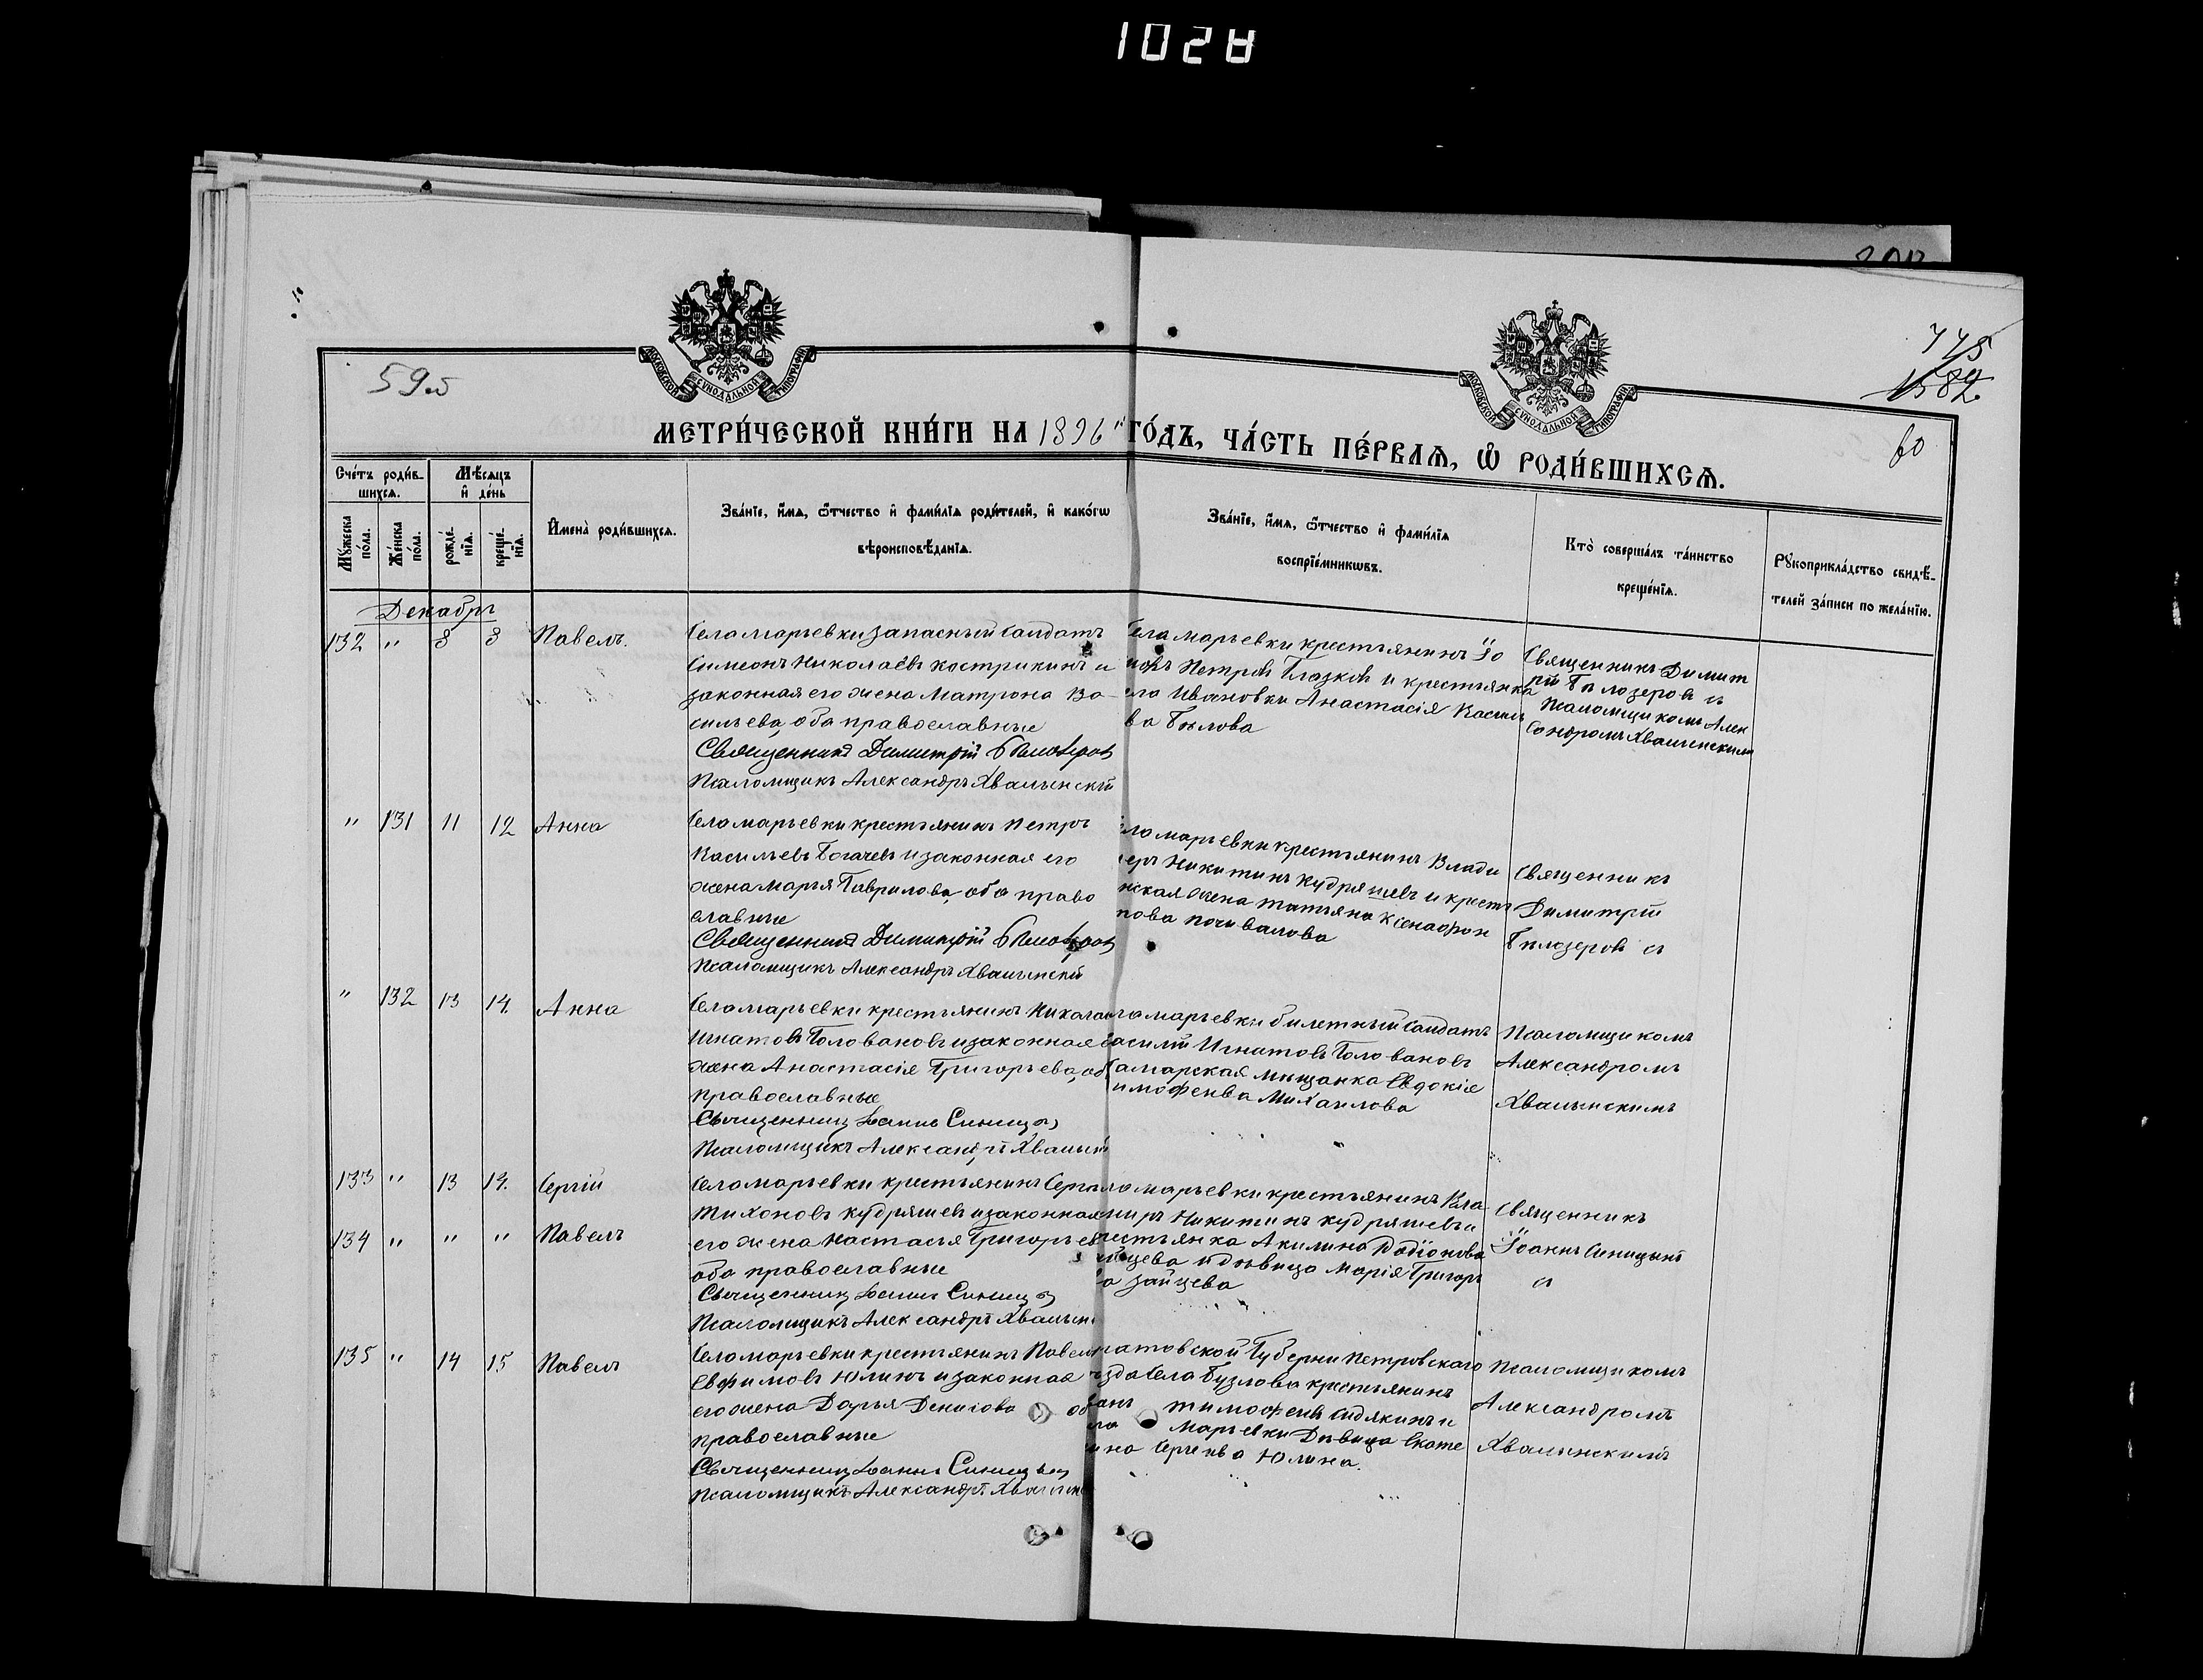 1028
775
1582
59об
60
МОСКОВСКОЙ СУНОДАЛЬНОЙ ТИПОГРАФІИ
МОСКОВСКОЙ СУНОДАЛЬНОЙ ТИПОГРАФІИ
МЕТРИ́ЧЕСКОЙ КНИ́ГИ НА 1896 ГО́ДЪ, ЧА́СТЬ ПЕ́РВАѦ, Ѡ҆ РОДИ́ВШИХСѦ.
Сче́тъ роди́в-
шихсѧ.
Мѣ́сѧцъ
и҆ де́нь
Мꙋ́жеска по́ла.
Же́нска по́ла.
рожде́-нїѧ.
креще́-нїѧ.
И҆мена̀ роди́вшихсѧ.
Зва́нїе, и҆́мѧ, ѻ҆́тчество и҆ фами́лїѧ роди́телей, и҆ како́гѡ
вѣроисповѣ́данїѧ.
Зва́нїе, и҆́мѧ, ѻ҆́тчество и҆ фами́лїѧ
воспрїе́мникѡвъ.
Кто̀ соверша́лъ та́инство
креще́нїѧ.
Рꙋкоприкла́дство свидѣ́-
телей за́писи по жела́нїю.
Декабрь
132 " 8 8 Павелъ.
Села Марьевки запасный солдатъ
Симеонъ Николаевъ Кострикинъ и
законная его жена Матрона Ва-
сильева, оба православные
Священникъ Димитрій Бѣлозеровъ
Псаломщикъ Александръ Хвалынскій
Села Марьевки крестьянинъ Іо
Петровъ Глазковъ и крестьянка
села Ивановки Анастасія Василь
ва Бѣлова
Священникъ Димит
рій Бѣлозеровъ съ
Псаломщикомъ Алек
сандромъ Хвалынскимъ
" 131 11 12 Анна
Села Марьевки крестьянинъ Петръ
Васильевъ Богачевъ и законная его
жена Марья Гаврилова, оба право
славные
Священникъ Димитрій Бѣлозеровъ
Псаломщикъ Александръ Хвалынскій
ела Марьевки крестьянинъ Влади
еръ Никитинъ Кудряшевъ и крестъ
нская жена Татьяна Ксенофон
това Почивалова
Священникъ
Димитрій
Бѣлозеровъ съ
" 132 13 14. Анна
Села Марьевки крестьянинъ Никола
Игнатовъ Головановъ и законная
жена Анастасія Григорьева, об
православные
Священникъ Іоаннъ Синицын
Псаломщикъ Александръ Хвалын
ла Марьевки билетный солдатъ
асилій Игнатовъ Головановъ
Самарская мѣщанка Евдокія
имофеева Михайлова
Псаломщикомъ
Александромъ
Хвалынскимъ
133 " 13 14. Сергій
134 " " " Павелъ
Села Марьевки крестьянинъ Серг
Тихоновъ Кудряшевъ и законная
его жена Настасья Григорьев
оба православные
Священникъ Іоаннъ Синицын
Псаломщикъ Александръ Хвалын
ла Марьевки крестьянинъ Вла
миръ Никитинъ Кудряшевъ и
рестьянка Акилина Родіонова
йцева и дѣвица Марія Григорь
ва Зайцева
Священникъ
Іоаннъ Синицынъ
съ
135 " 14 15 Павелъ
Села Марьевки крестьянинъ Павел
Евфимовъ Юлинъ и законная
его жена Дарья Денисова об
православные
Священникъ Іоаннъ Синицын
Псаломщикъ Александръ Хвалын
ратовской Губерни Петровскаго
ѣзда села Бузлова крестьянинъ
ванъ Тимофеевъ Сидякинъ и
ла Марьевки дѣвица Екате
ина Сергеева Юлина.
Псаломщикомъ
Александромъ
Хвалынскимъ